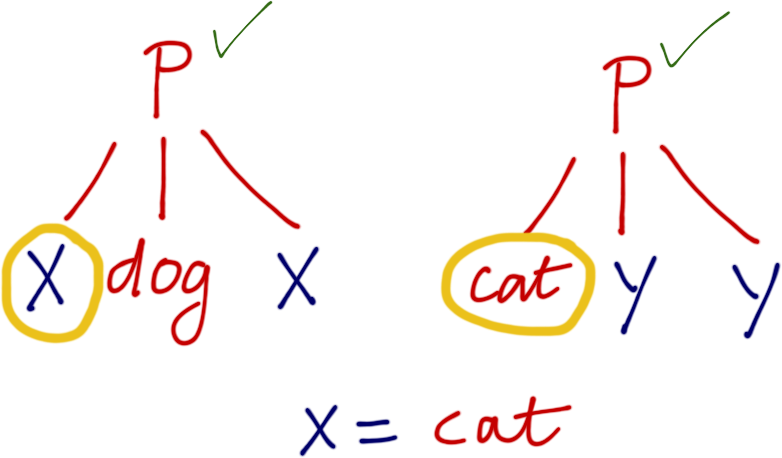 P P
X dog X cat Y Y
X = cat